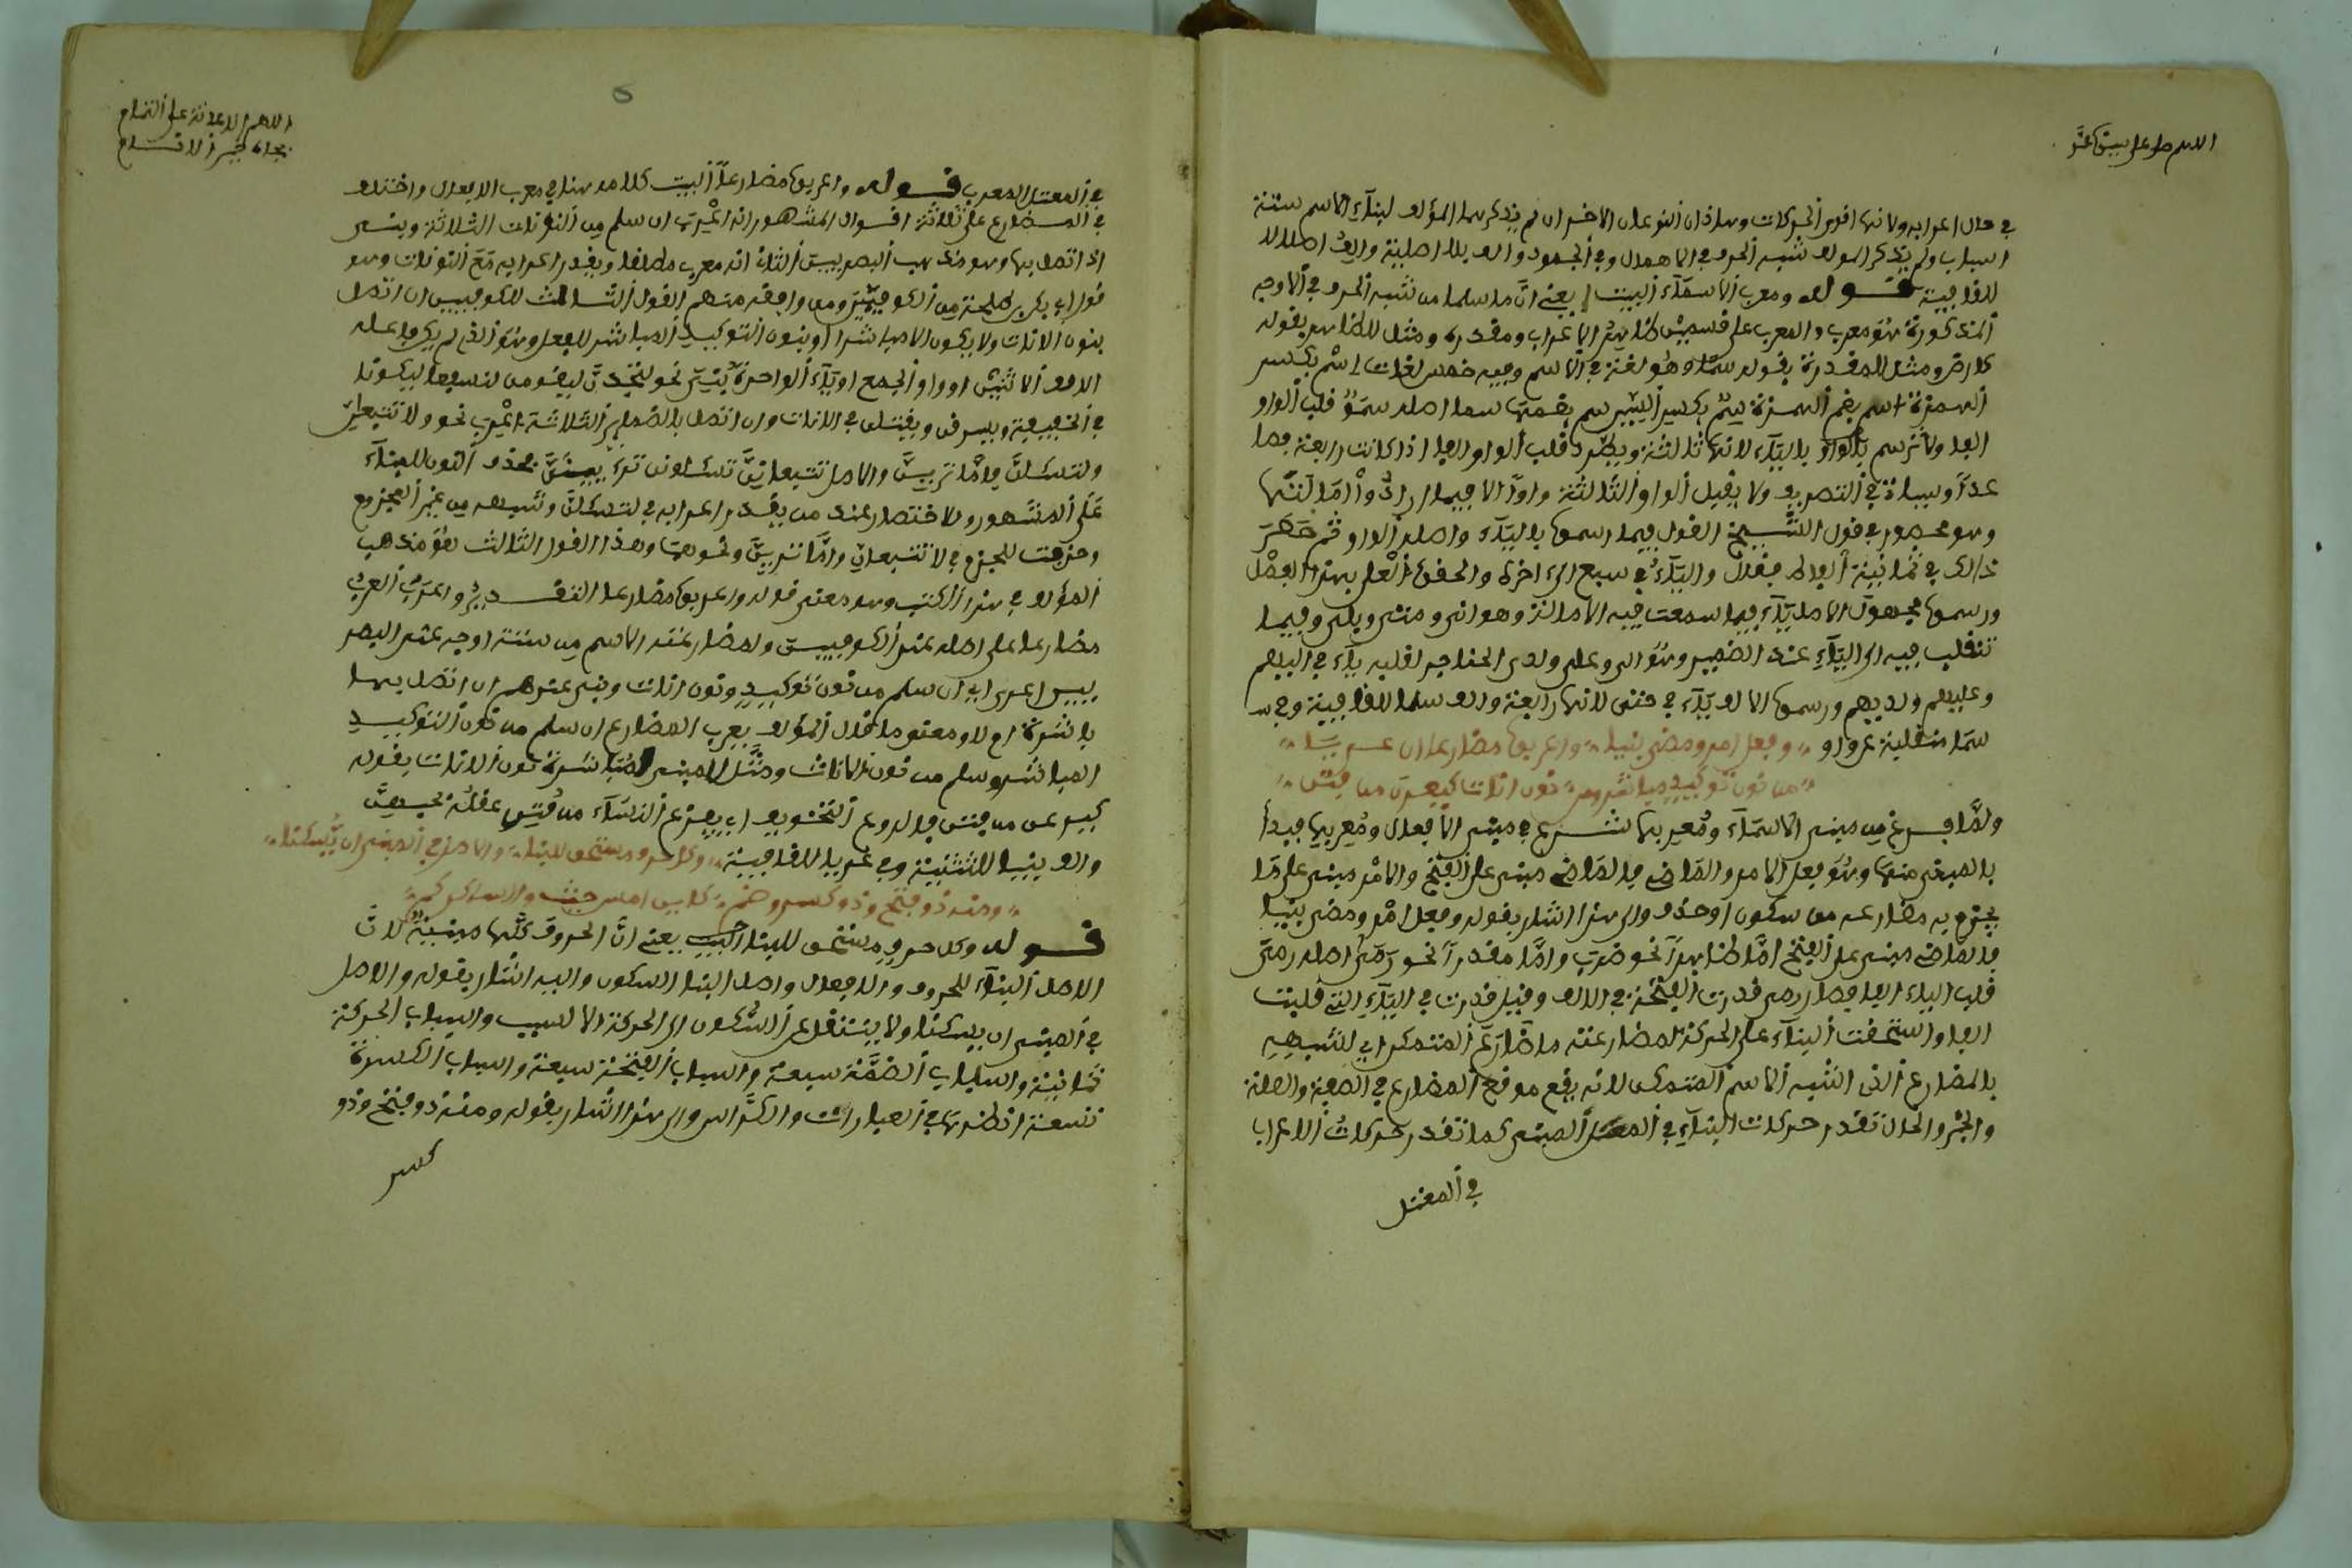 اللهم صل على سيدنا محمد
في حال اعرابه ولانها افوى الحركات وهاذان النوعان الاخيران لم يذكرهما المؤلف لبناء الاسم ستة
اسباب ولم يذكر المؤلف شبه الحرف في الاهمال وفي الجمود والف بلا اصلية والف اصلا لا
للفافية فوله ومعرب الاسماء البيت يعني ان ما سلما من شبه الحرف في الاوجه
المذكورة هو معرب والمعرب على فسمين ظاهر الاعراب ومفدره ومثل للظاهر بفوله
كارض ومثل للمفدرة بفوله سما وهو لغة في الاسم وفيه خمس لغات اسم بكسر
الهمزة اسم بضم الهمزة سم بكسر السين سم بضمها سما اصله سمو فلب الواو
الفا ولم ترسم بالواو بالياء لانها ثالثة ويطرد فلب الواو الفا اذا كانت رابعة فصا
عدا وبيانه في التصريف ولا يفبل الواو الثالثة
وهو محصور في فول الشيخ الفول فيما رسموا بالياء واصله الواو ثم حصر
ذالك في ثمانية الفاظ فقال والياء في سبع
ورسموا مجهول الاصل بياء فيما سمعت فيه الامالة وهو انى ومتى وبلى وفيما
تنفلب فيه الى الياء عند الضمير وهو الى وعلى ولدى الحناجر لفلبه ياء في اليهم
وعليهم ولديهم ورسموا الالف ياء في حتى لانها رابعة والف سما للفافية وفي
سما منفلبة عن واو وفعل امر ومضي بنيا واعربوا مضارعا ان عريا
من نون توكيد مباشر ومن نون اناث كيرعن من فتن
ولما فرغ من مبني الاسماء ومعربها شرع في مبني الافعال ومعربها فبدأ
بالمبني منها وهو فعل الامر والماضي فالماضي مبني على الفتح والامر مبني على ما
يجزم به مضارعه من سكون او حذف والى هذا اشار بفوله وفعل امر ومضي بنيا
فالماضي مبني على الفتح اما ظاهرا نحو ضرب واما مفدرا نحو رمى اصله رمي
فلب الياء الفا فصار رمى فدرت الفتحة في الالف وفيل فدرت في الياء التي فلبت
الفا واستحفت البناء على الحركة لمضارعته ما ضارع المتمكن اي لشبهه
بالمضارع الذي اشبه الاسم المتمكن لانه يفع موفع المضارع في الصفة والصلة
والخبر والحال تفدر حركات البناء في المبني كما تفدر حركات الاعراب
في المعتل
اللهم الاعانة على التمام
بجاه خير الانام
في المعتل المعرب فوله واعربوا مضارعا البيت كلامه هنا في معرب الافعال واختلف
في المضارع على ثلاثة افوال المشهور انه معرب ان سلم من النونات الثلاثة وبني
ان اتصل بها وهو مذهب البصريين الثاني انه معرب مطلفا ويفدر اعرابه مع النونات وهو
فول ابي بكر بن طلحة من الكوفيين ومن وافقه منهم الفول الثالث للكوفيين ان اتصل
بنون الاناث ولا يكون الا مباشرا او بنون التوكيد المباشر للفعل وهو الذي لم يكن فاعله
الف الاثنين او واو الجمع او ياء الواحدة بني نحو لينبذن ليفومن لنسفعا ليكونا
في الخفيفة وبيسرفن ويفتلن في الاناث وان اتصل بالضمائر الثلاثة اعرب نحو ولا تتبعان
ولتسئلن فاما ترين والاصل تتبعان تسئلون بحذف النون للبناء
على المشهور
وحذفت للجزم في لا تتبعان واما ترين ونحوهما وهذا الفول الثالث هو مذهب
المؤلف في هذا الكتب وهو معنى فوله واعربوا مضارعا
مضارعا على اصله عند الكوفيين ولمضارعته الاسم من ستة اوجه عند البصر
يين اعرب اي ان سلم من نون توكيد ونون اناث وبني عندهم ان اتصل بها
باشرته ام لا ومعنى ما فال المؤلف يعرب المضارع ان سلم من نون التوكيد
المباشر وسلم من نون الاناث ومثل للمبني لمباشرة نون الاناث بفوله
كيرعن من فتن فالروع التخويف اي يفزع النساء من فتن عفله بحسنهن
والف بنيا للتثنية وفي عريا للفافية وكل حرف مستحق للبنا والاصل في المبني ان يسكنا
ومنه ذو فتح وذو كسر وضم كاين امس حيث والساكن كم
فوله وكل حرف مستحق للبنا البيت يعني ان الحروف كلها مبنية لان
الاصل البناء للحروف والافعال واصل البنا السكون واليه اشار بفوله والاصل
في المبني ان يسكنا ولا ينتفل عن السكون الى الحركة الا لسبب واسباب الحركة
ثمانية واسباب الضمة سبعة واسباب الفتحة سبعة واسباب الكسرة
تسعة انظرها في العبارات والكراس والى هذا اشار بفوله ومنه ذو فتح وذو
كسر